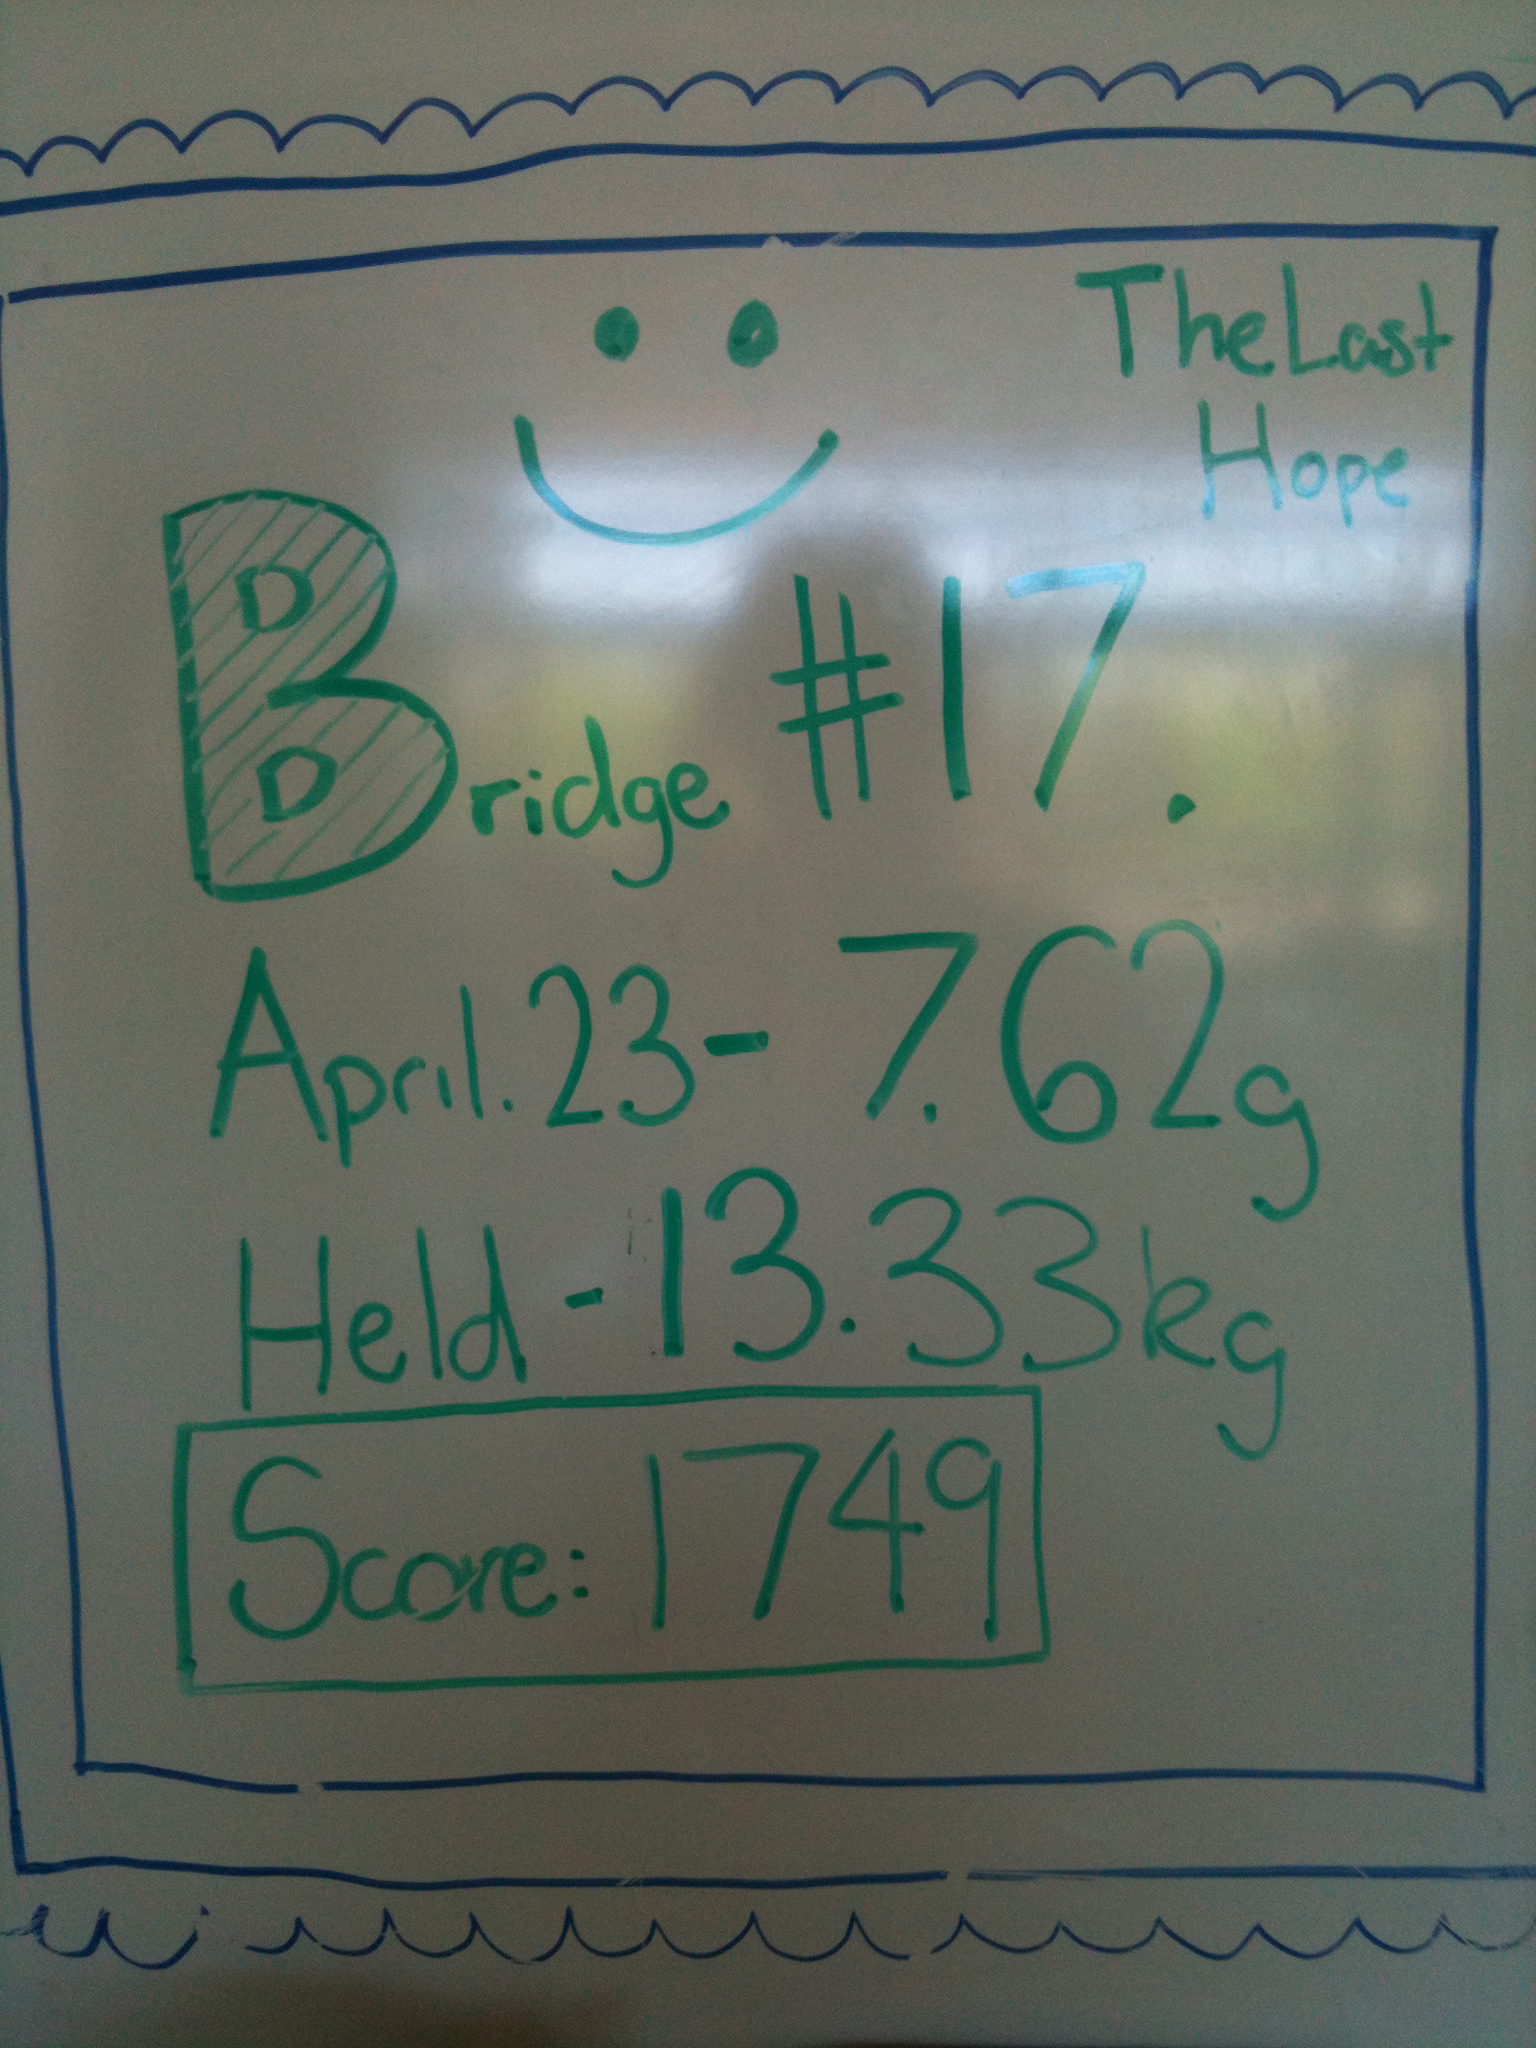 The Last
Hope
Bridge #17.
April. 23 - 7.62g
Held - 13.33kg
Score: 1749